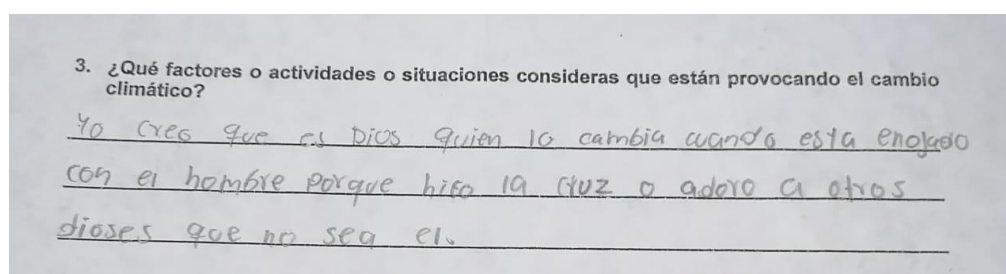 3. ¿Qué factores o actividades o situaciones consideras que están provocando el cambio
climático?
Yo creo que es Dios quien lo cambia cuando esta enojado
con el hombre porque hiso la cruz o adoro a otros
dioses que no sea el.